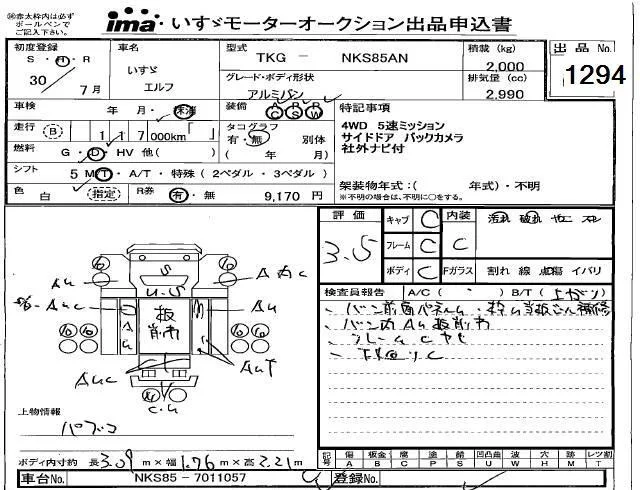 ※赤太枠内は必ず
ボールペンで
ご記入下さい。
ima いすゞモーターオークション出品申込書
初度登録 車名 型式 TKG - NKS85AN 積載 (kg) 2,000 出品 No.
S・H・R いすゞ
30 7月 エルフ グレード・ボディ形状 アルミバン 排気量 (cc) 2,990 1294
車検 年 月・抹消 装備 A P R C S W 特記事項
走行 B 117,000km「 」 タコグラフ 有・無 別体 4WD 5速ミッション
燃料 G・D・HV 他( ) ( 年 月) サイドドア バックカメラ
社外ナビ付
シフト 5 MT・A/T・特殊 (2ペダル・3ペダル)
色 白 指定 R券 有・無 9,170 円 架装物年式:( 年式)・不明
※不明の場合は、不明に○をする。
評価 3.5 キャブ C 内装 C 汚れ 破れ ヤニ スレ
フレーム C
ボディ C Fガラス 割れ 線 点傷 イバリ
検査員報告 A/C( ・ ) B/T(上がり)
フレームCヤレ
S
U.S
A u
A u c
A u
A u T
A u c
C.u
上物情報
パブコ
ボディ内寸約 長 3.09 m×幅 1.76 m×高 2.21 m
記号 傷 A 板金 B 腐 C 塗 P 錆 S 凹凸曲 U 波 W 穴 H 跡 M レツ割 T
車台No. NKS85 - 7011057 登録No.